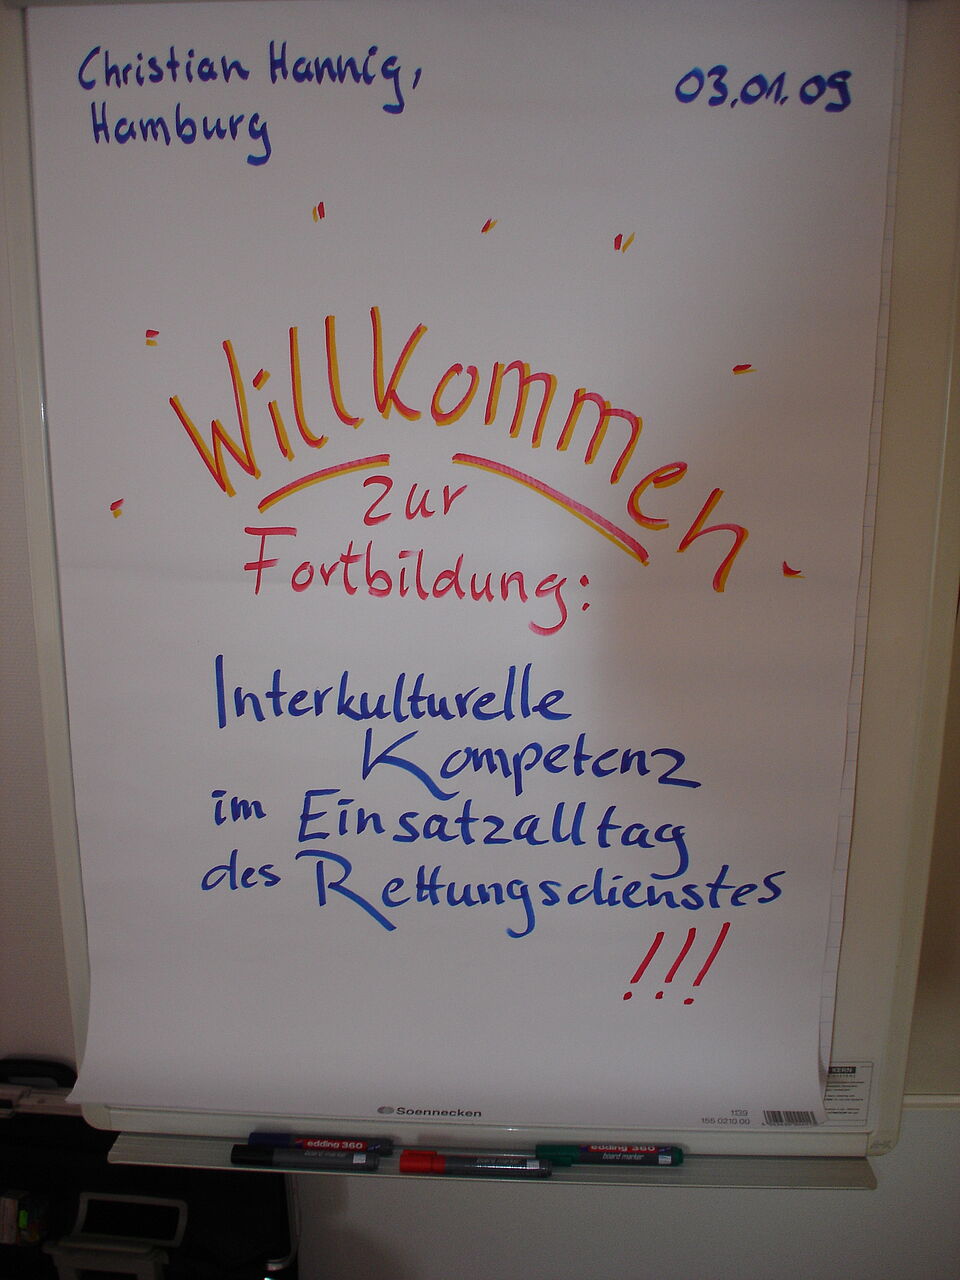 Christian Hannig,
Hamburg
03.01.09
Willkommen
zur
Fortbildung:
Interkulturelle
Kompetenz
im Einsatzalltag
des Rettungsdienstes
!!!
KERN
Soennecken
1139
155 0210 00
edding 360
board marker
board marker
board marker
edding 360
board marker